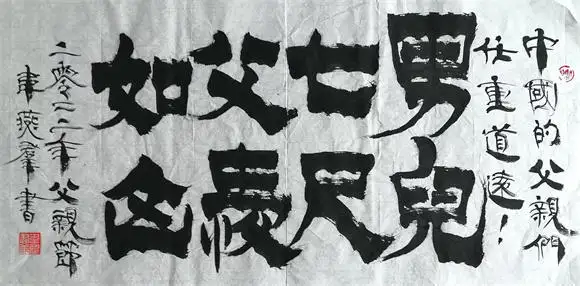 中國的父親們
任重道遠！
男兒
七尺
父愛
如山
二零二二年父親節
燕羣書